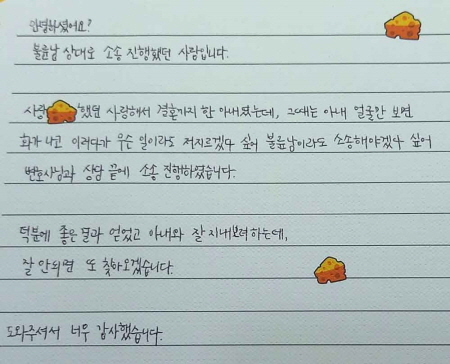 안녕하셨어요?
불륜남 상대로 소송 진행했던 사람입니다.
사랑 했던 사랑해서 결혼까지 한 아내였는데, 그때는 아내 얼굴만 보면
화가 나고 이러다가 무슨 일이라도 저지르겠다 싶어 불륜남이라도 소송해야겠다 싶어
변호사님과 상담 끝에 소송 진행하였습니다.
덕분에 좋은 결과 얻었고 아내와 잘 지내보려 하는데,
잘 안되면 또 찾아오겠습니다.
도와주셔서 너무 감사했습니다.